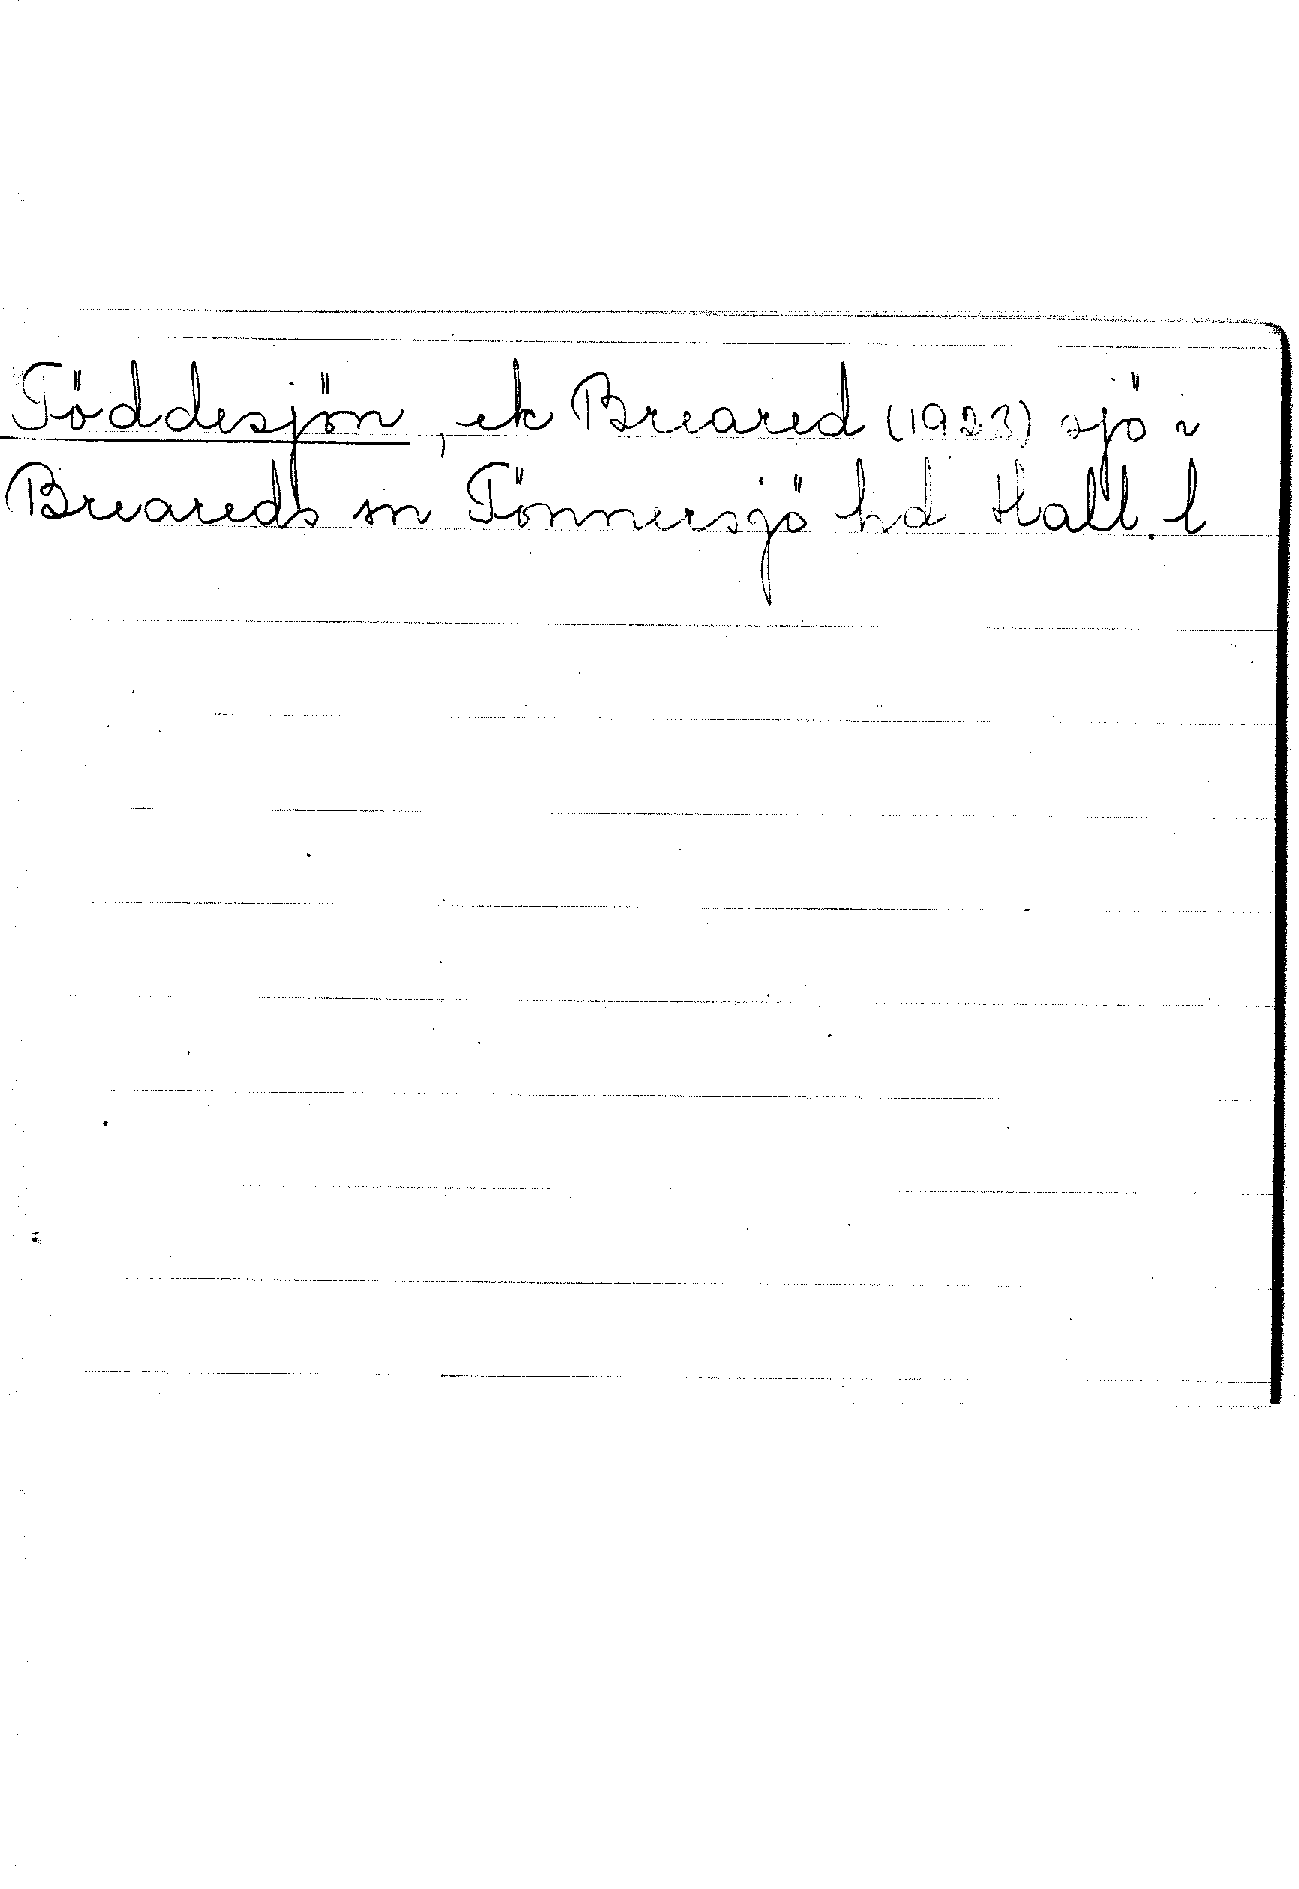 Töddesjön, ek Breared (1923) sjö i
Breareds sn Tönnersjö hd Hall. l